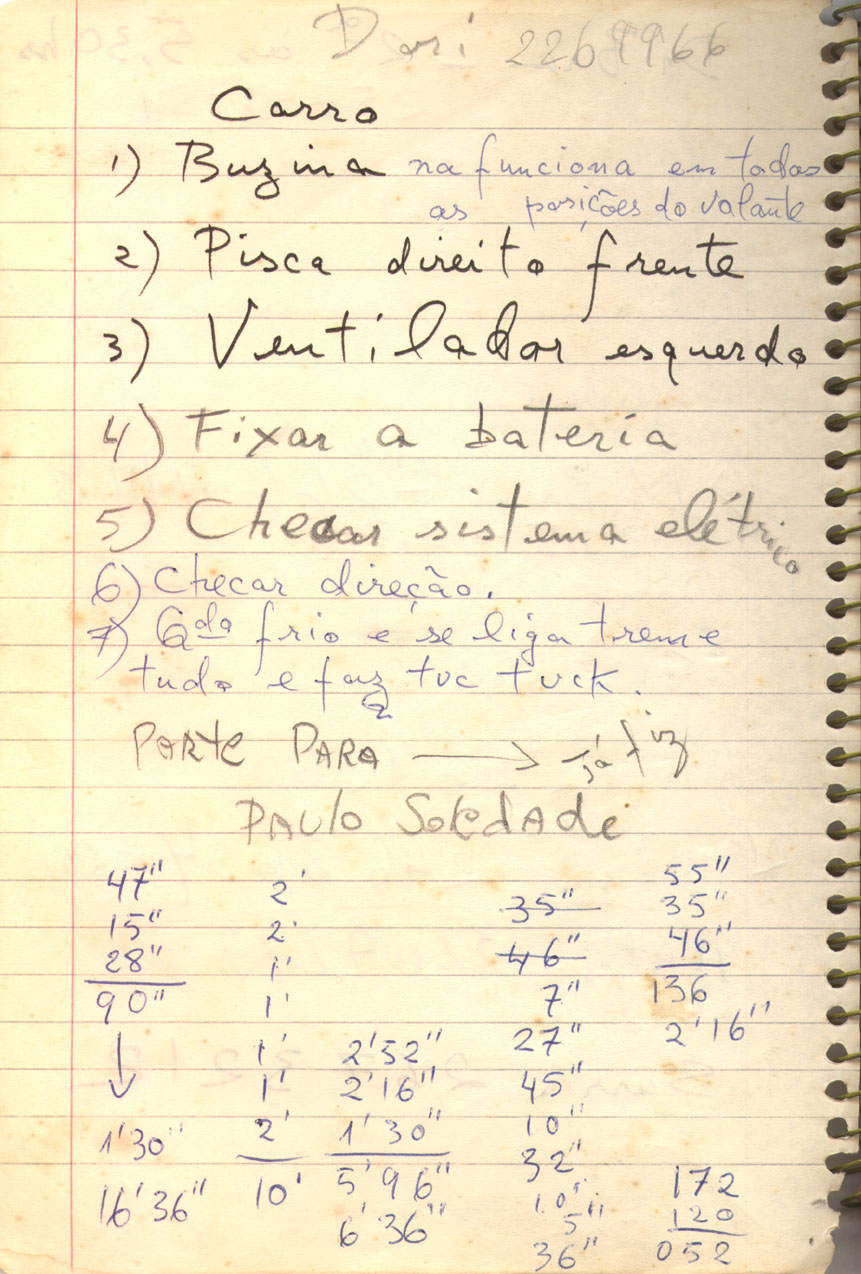 Dori 2269966
Carro
1) Buzina na funciona em todas
as posições do volante
2) Pisca direito frente
3) Ventilador esquerdo
4) Fixar a bateria
5) Checar sistema elétrico
6) Checar direção.
7) Qdo frio e se liga treme
tudo e faz tuc tuck.
PARTE PARA → já fiz
PAULO SOLEDADE
47" 2' 35" 55"
15" 2' 46" 35"
28" 1' 7" 46"
90" 1' 27" 136
↓ 1' 2'52" 45" 2'16"
1' 2'16" 10"
1'30" 2' 1'30" 32"
16'36" 10' 5'96" 10" 172
6'36" 5" 120
36" 052